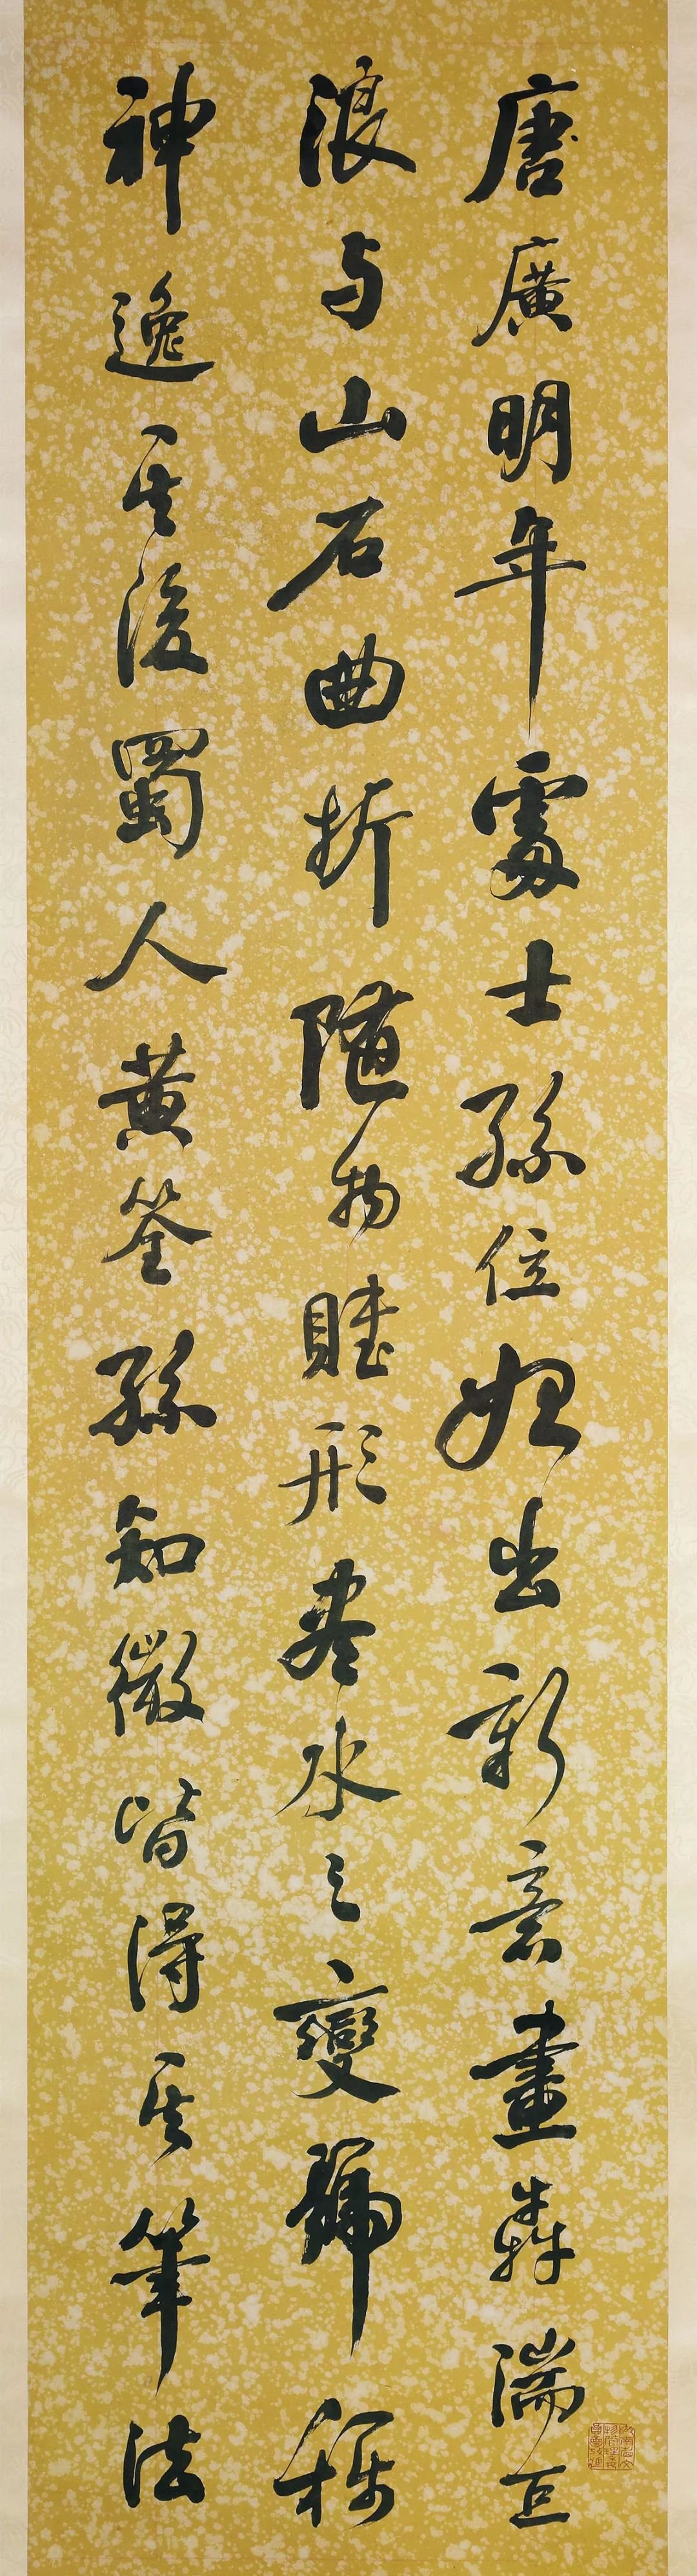 唐廣明年處士孫位始出新意畫犇湍巨
浪与山石曲折隨物賦形盡水之變號稱
神逸其後蜀人黄筌孫知微皆得其筆法